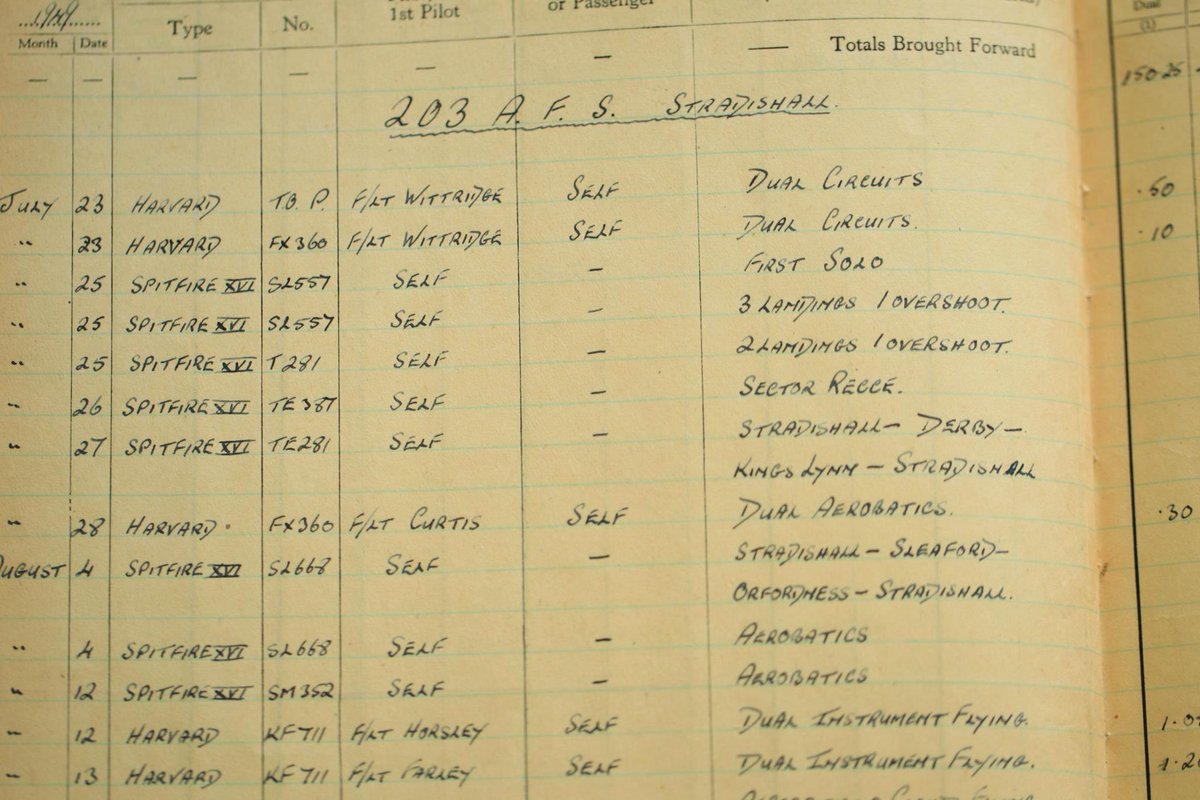 1949
1st Pilot or Passenger
Month Date Type No. Dual
(1)
— — — — — — — Totals Brought Forward 150.25
203 A. F. S. STRADISHALL.
JULY 23 HARVARD TO. P. F/LT WITTRIDGE SELF DUAL CIRCUITS .50
" 23 HARVARD FX360 F/LT WITTRIDGE SELF DUAL CIRCUITS. .10
" 25 SPITFIRE XVI SL557 SELF — FIRST SOLO
" 25 SPITFIRE XVI SL557 SELF — 3 LANDINGS 1 OVERSHOOT.
" 25 SPITFIRE XVI T281 SELF — 2 LANDINGS 1 OVERSHOOT.
" 26 SPITFIRE XVI TE387 SELF — SECTOR RECCE.
" 27 SPITFIRE XVI TE281 SELF — STRADISHALL — DERBY —
KINGS LYNN — STRADISHALL
" 28 HARVARD FX360 F/LT CURTIS SELF DUAL AEROBATICS. .30
AUGUST 4 SPITFIRE XVI SL668 SELF — STRADISHALL — SLEAFORD —
ORFORDNESS — STRADISHALL.
" 4 SPITFIRE XVI SL668 SELF — AEROBATICS
" 12 SPITFIRE XVI SM352 SELF — AEROBATICS
" 12 HARVARD KF711 F/LT HORSLEY SELF DUAL INSTRUMENT FLYING.
" 13 HARVARD KF711 F/LT FARLEY SELF DUAL INSTRUMENT FLYING.